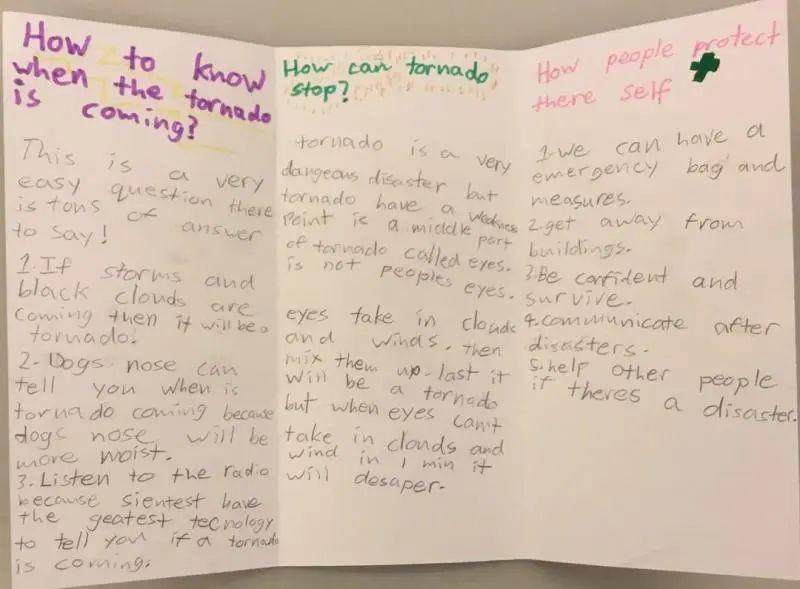 How to know
when the tornado
is coming?
This is a very
easy question there
is tons of answer
to say!
1. If storms and
black clouds are
coming then it will be a
tornado.
2. Dogs nose can
tell you when is
tornado coming because
dogs nose will be
more moist.
3. Listen to the radio
because sientest have
the geatest tecnology
to tell you if a tornado
is coming.
How can tornado
stop?
tornado is a very
dangeous disaster but
tornado have a weakness
point is a middle part
of tornado called eyes.
is not peoples eyes.
eyes take in clouds
and winds. then
mix them up. last it
will be a tornado
but when eyes can't
take in clouds and
wind in 1 min it
will desaper.
How people protect
there self
1. we can have a
emergency bag and
measures.
2. get away from
buildings.
3. Be confident and
survive.
4. communicate after
disasters.
5. help other people
if theres a disaster.